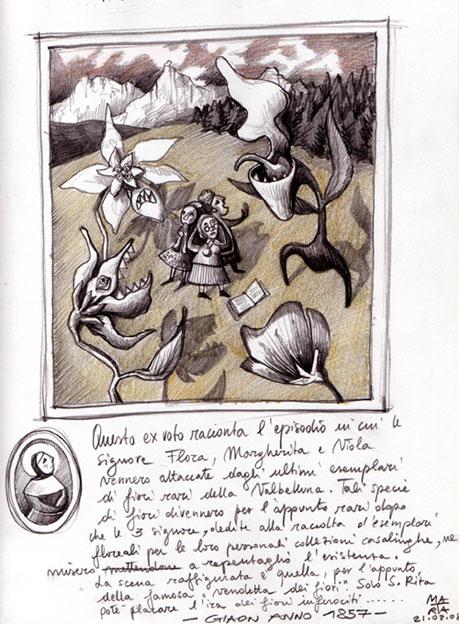 Questo ex voto racconta l'episodio in cui le
signore Flora, Margherita e Viola
vennero attaccate dagli ultimi esemplari
di fiori rari della Valbelluna. Tali specie
di fiori divennero per l'appunto rari dopo
che le 3 signore, dedite alla raccolta d'esemplari
floreali per le loro personali collezioni casalinghe, ne
misero mettendone a repentaglio l'esistenza.
La scena raffigurata è quella, per l'appunto,
della famosa "vendetta dei fiori". Solo S. Rita
poté placare l'ira dei fiori inferociti......
- GIAON ANNO 1857 -
MA
RA
21.08.08